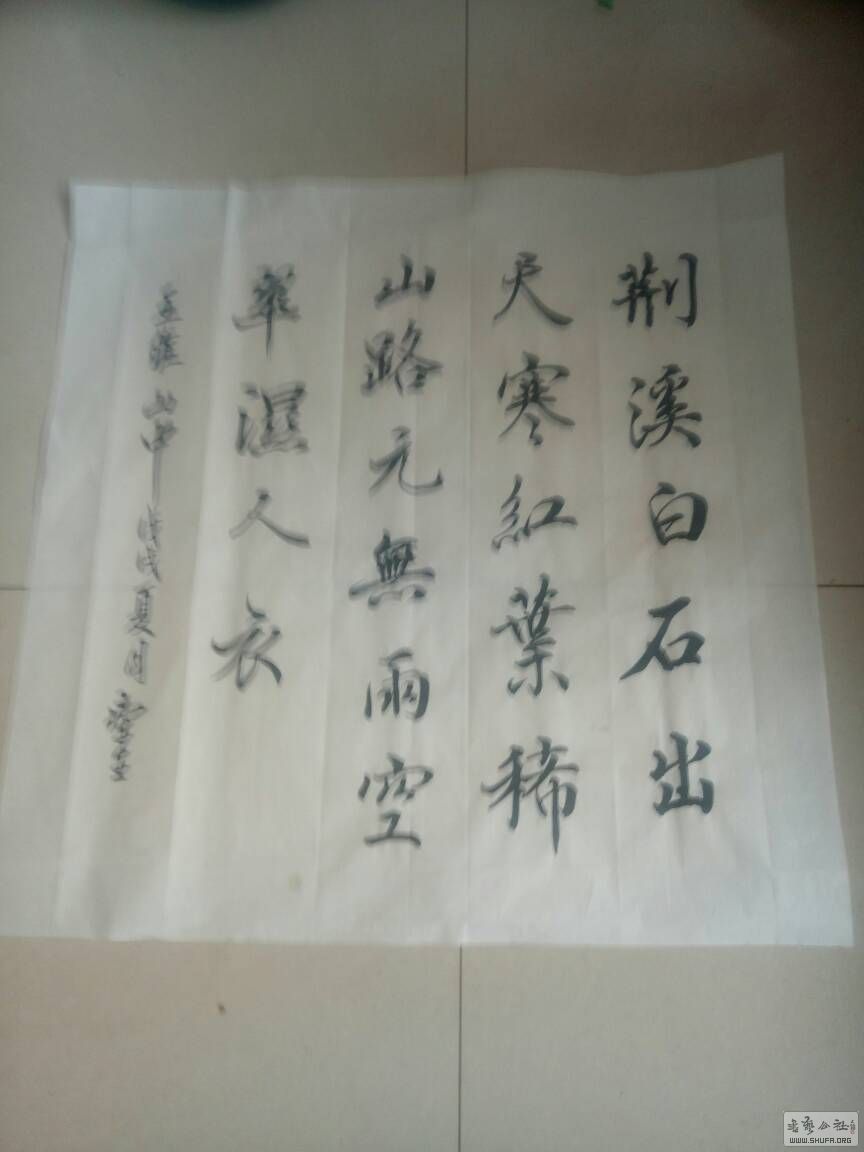 荆溪白石出
天寒紅葉稀
山路元無雨空
翠濕人衣
王維 山中 戊戌夏月
WWW.SHUFA.ORG